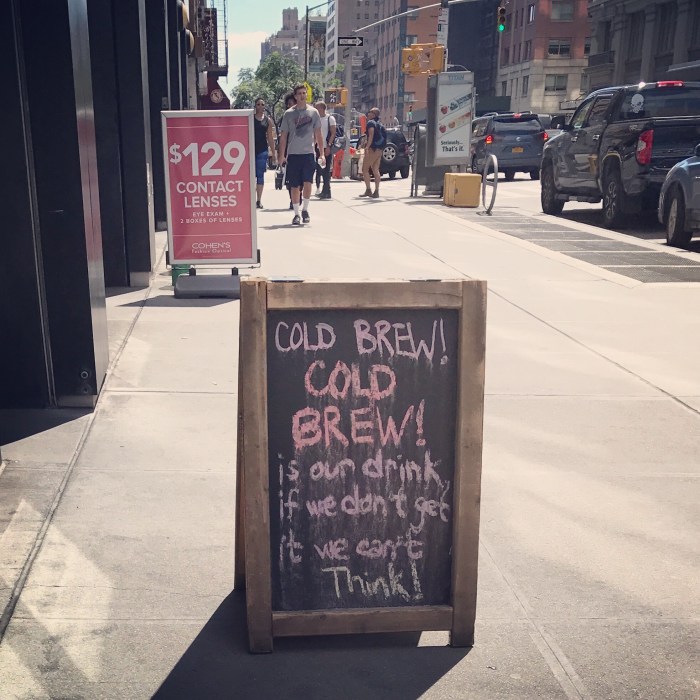 $129
CONTACT
LENSES
EYE EXAM +
2 BOXES OF LENSES
COHEN'S
Fashion Optical
Seriously...
That's it.
COLD BREW!
COLD
BREW!
is our drink
if we don't get
it we can't
Think!